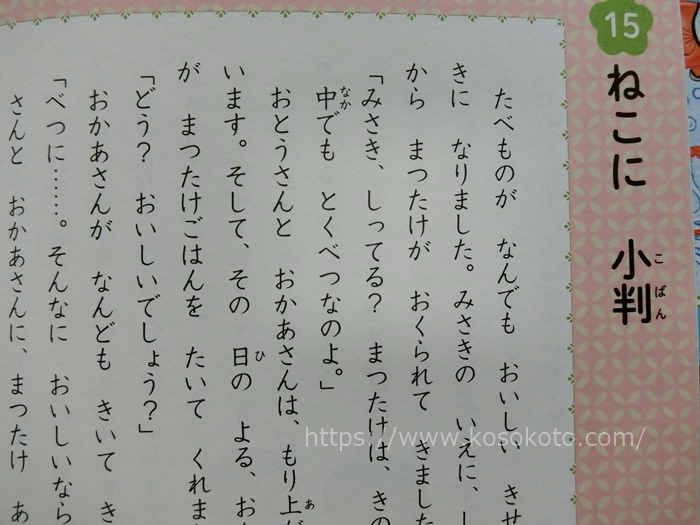 15
ねこに 小判
こばん
たべものが なんでも おいしい きせ
きに なりました。みさきの いえに、
から まつたけが おくられて きました
「みさき、しってる? まつたけは、きの
中でも とくべつなのよ。」
なか
おとうさんと おかあさんは、もり上が
あ
います。そして、その 日の よる、おか
ひ
が まつたけごはんを たいて くれま
「どう? おいしいでしょう?」
おかあさんが なんども きいて き
「べつに……。そんなに おいしいなら
さんと おかあさんに、まつたけ あ
https://www.kosokoto.com/